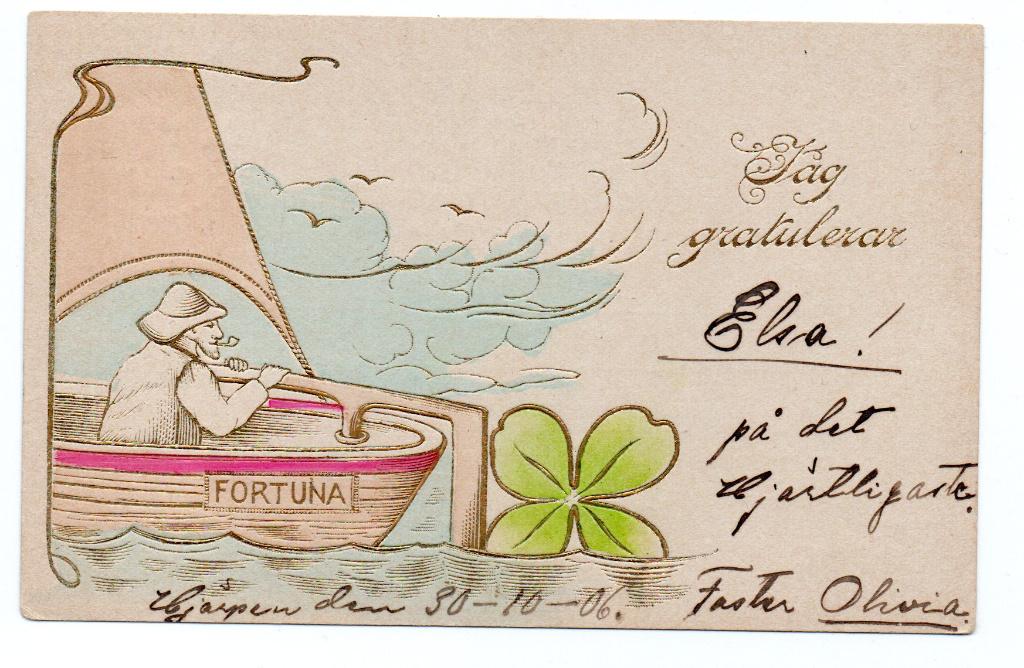 Jag
gratulerar
Elsa!
på det
Hjärtligaste.
FORTUNA
Hjärpen den 30-10-06.
Faster Olivia.